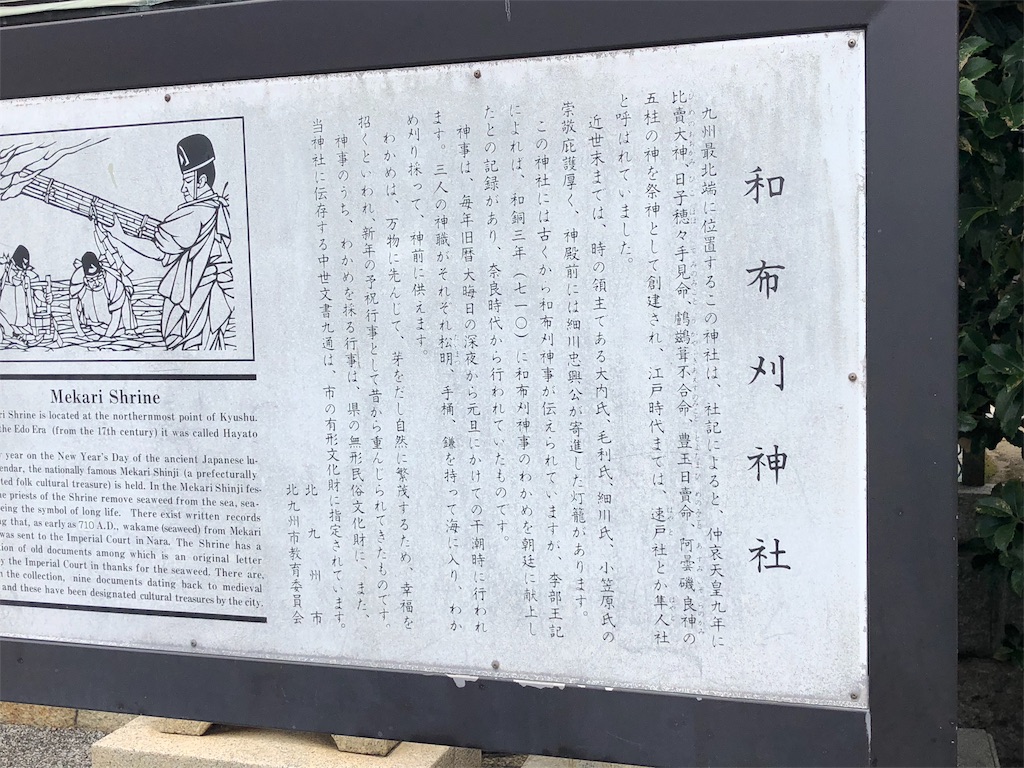 和布刈神社
九州最北端に位置するこの神社は、社記によると、仲哀天皇九年に
比賣大神、日子穂々手見命、鵜鷀葺不合命、豊玉日賣命、阿曇磯良神の
五柱の神を祭神として創建され、江戸時代までは、速戸社とか隼人社
と呼ばれていました。
近世末までは、時の領主である大内氏、毛利氏、細川氏、小笠原氏の
崇敬庇護厚く、神殿前には細川忠興公が寄進した灯籠があります。
この神社には古くから和布刈神事が伝えられていますが、李部王記
によれば、和銅三年(七一〇)に和布刈神事のわかめを朝廷に献上し
たとの記録があり、奈良時代から行われていたものです。
神事は、毎年旧暦大晦日の深夜から元旦にかけての干潮時に行われ
ます。三人の神職がそれぞれ松明、手桶、鎌を持って海に入り、わか
め刈り採って、神前に供えます。
わかめは、万物に先んじて、芽をだし自然に繁茂するため、幸福を
招くといわれ、新年の予祝行事として昔から重んじられてきたものです。
神事のうち、わかめを採る行事は、県の無形民俗文化財に、また、
当神社に伝存する中世文書九通は、市の有形文化財に指定されています。
北九州市
北九州市教育委員会
Mekari Shrine
Shrine is located at the northernmost point of Kyushu.
the Edo Era (from the 17th century) it was called Hayato
year on the New Year's Day of the ancient Japanese lu-
endar, the nationally famous Mekari Shinji (a prefecturally
ted folk cultural treasure) is held. In the Mekari Shinji fes-
e priests of the Shrine remove seaweed from the sea, sea-
eing the symbol of long life. There exist written records
ng that, as early as 710 A.D., wakame (seaweed) from Mekari
was sent to the Imperial Court in Nara. The Shrine has a
tion of old documents among which is an original letter
y the Imperial Court in thanks for the seaweed. There are,
n the collection, nine documents dating back to medieval
and these have been designated cultural treasures by the city.